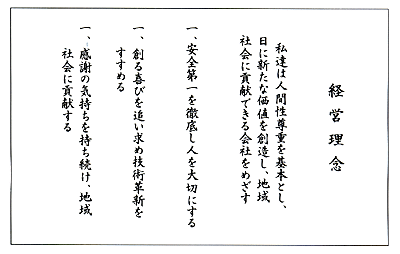 経営理念
私達は人間性尊重を基本とし、
日に新たな価値を創造し、地域
社会に貢献できる会社をめざす
一、安全第一を徹底し人を大切にする
一、創る喜びを追い求め技術革新を
すすめる
一、感謝の気持ちを持ち続け、地域
社会に貢献する